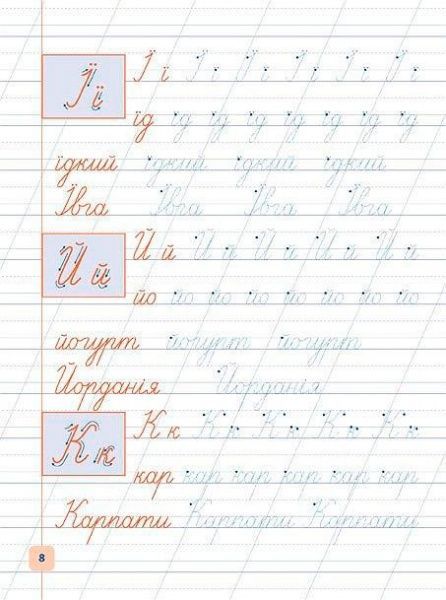 Ї ї Ї ї Ї ї Ї ї Ї ї Ї ї Ї ї
їд їд їд їд їд їд їд їд
їдкий їдкий їдкий їдкий
Ївга Ївга Ївга Ївга
Й й Й й Й й Й й Й й Й й
йо йо йо йо йо йо йо йо
йогурт йогурт йогурт
Йорданія Йорданія
К к К к К к К к К к К к
кар кар кар кар кар кар кар
Карпати Карпати Карпати
8